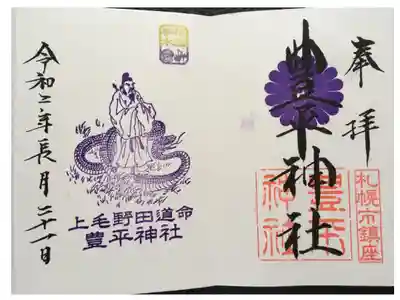 奉拝
豊平神社
札幌 鎮座
豊平
神社
上毛野田道命
豊平神社
令和二年長月二十一日